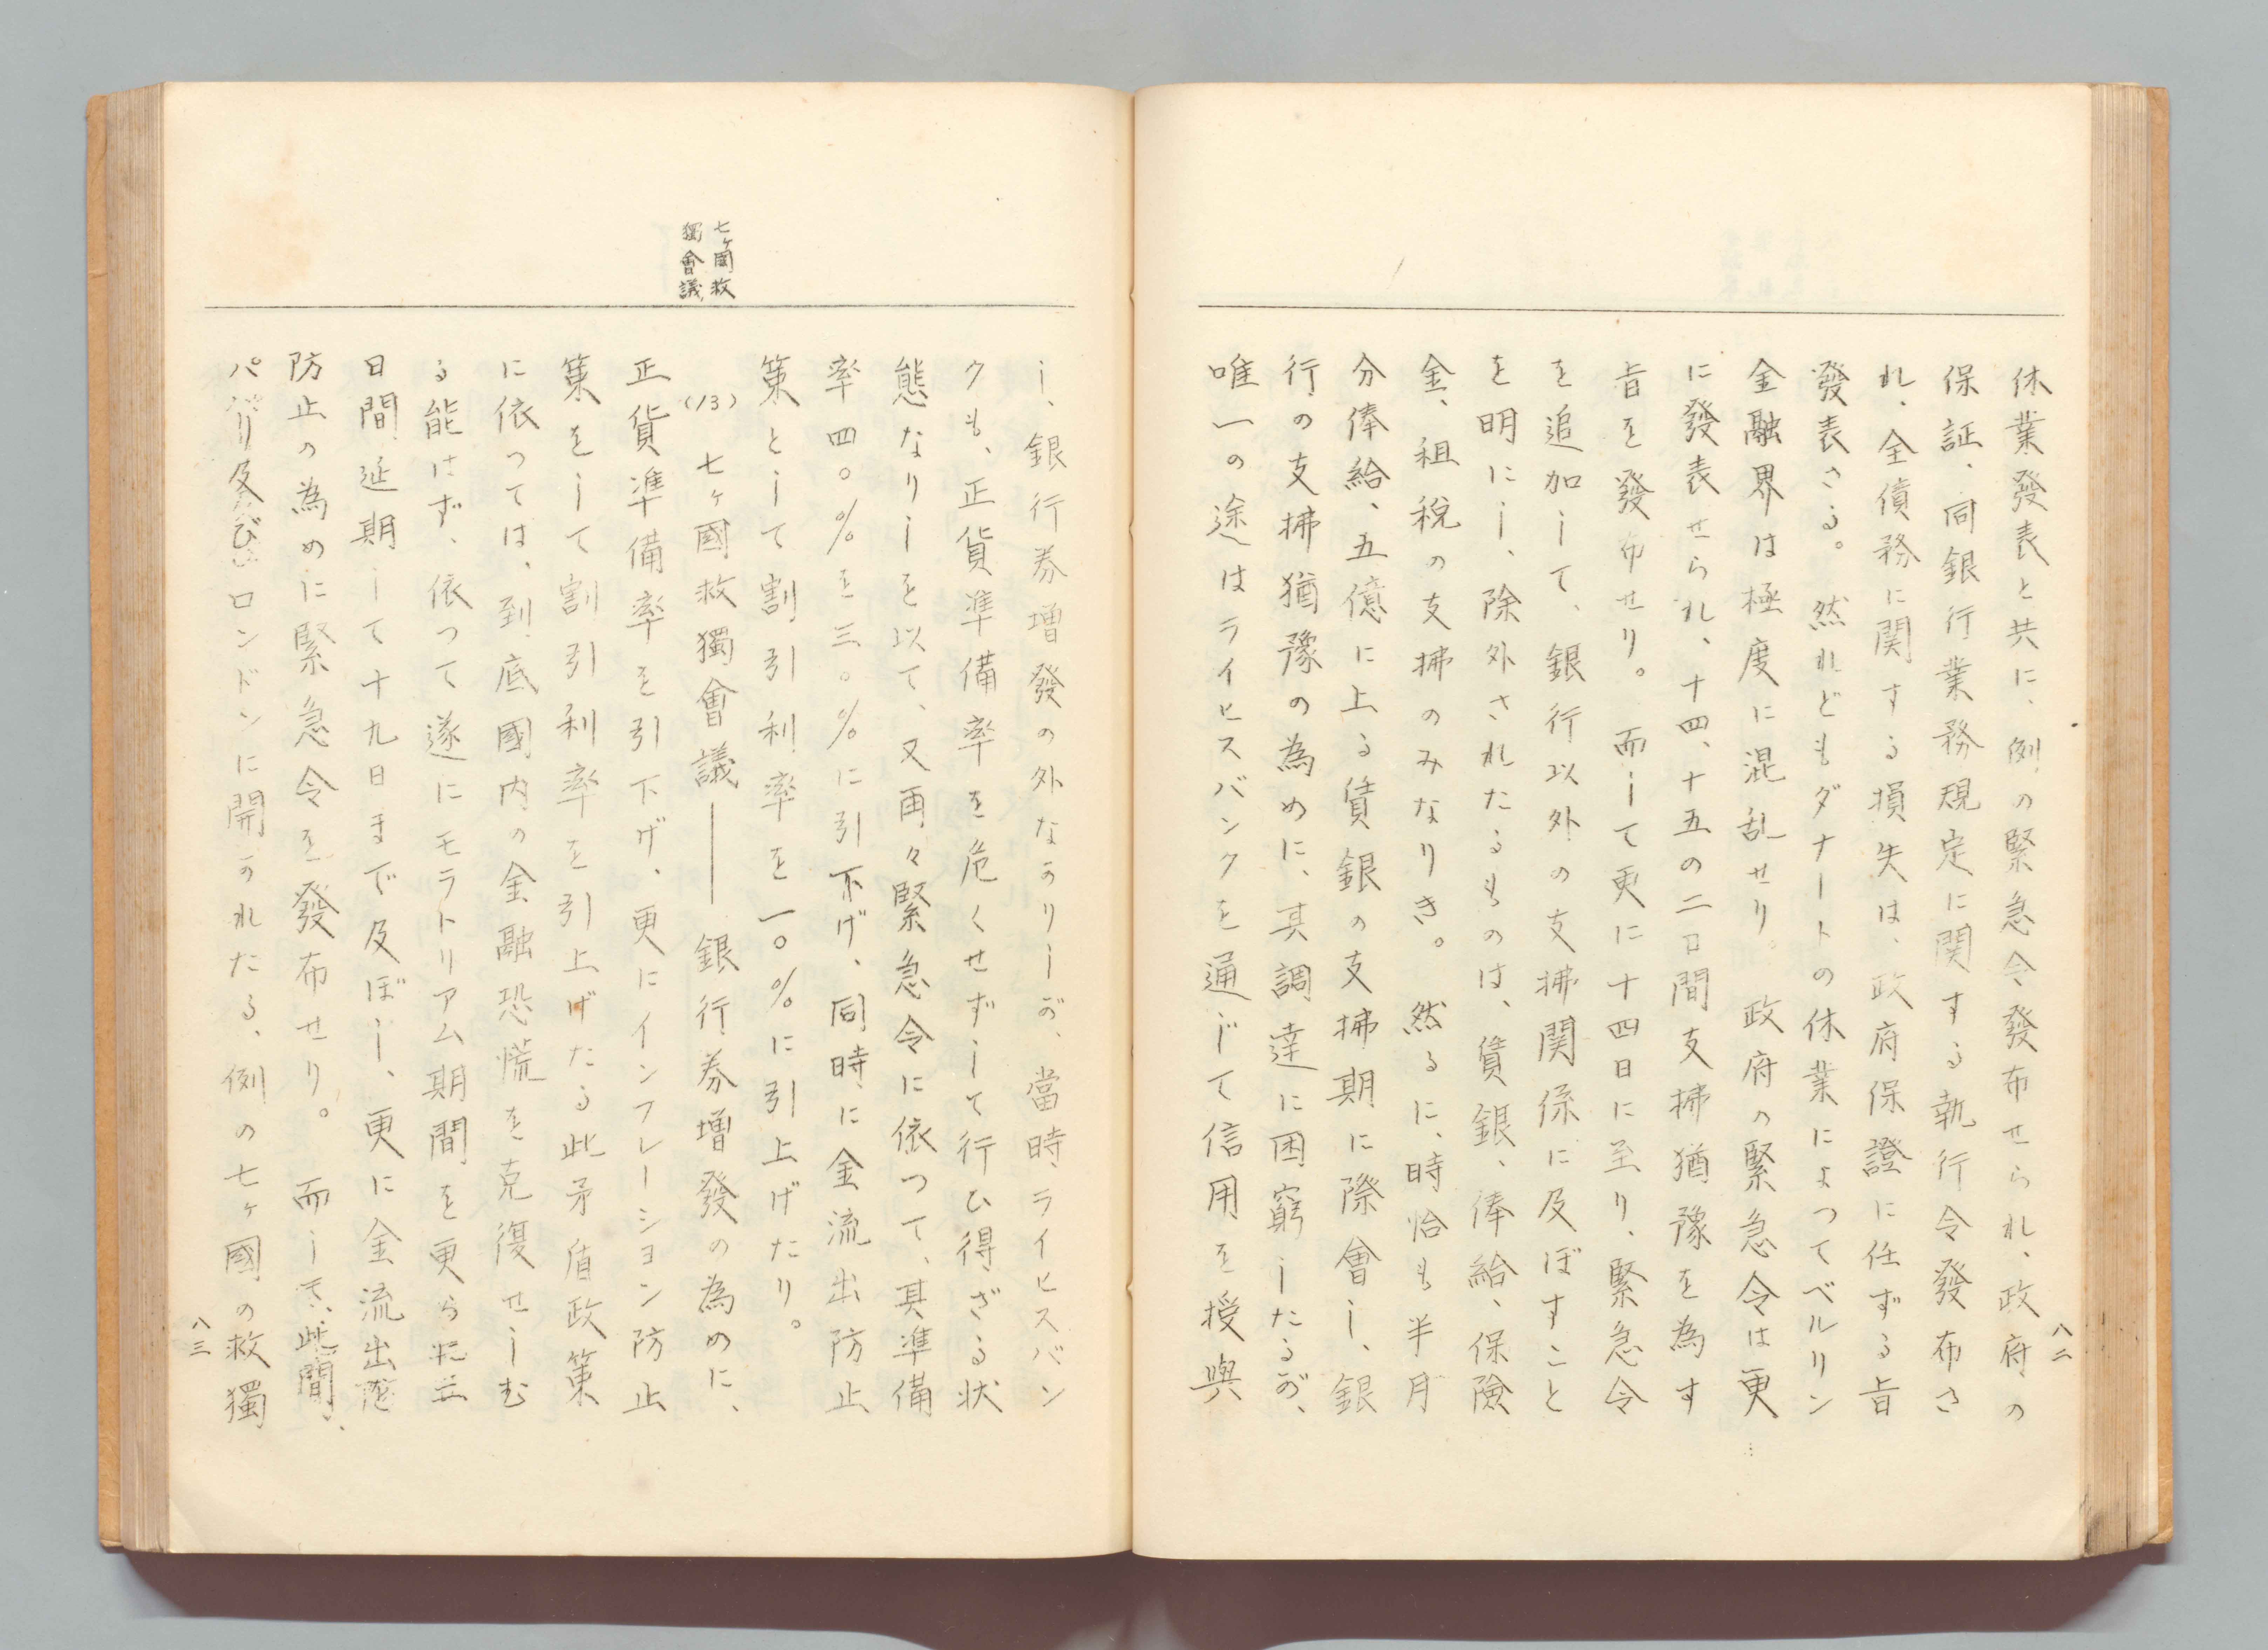 休業發表と共に、例の緊急令發布せられ、政府の
保証、同銀行業務規定に関する執行令發布さ
れ、全債務に関する損失は、政府保證に任ずる旨
發表さる。然れどもダナートの休業によつてベルリン
金融界は極度に混乱せり。政府の緊急令は更
に發表せられ、十四、十五の二日間支拂猶豫を為す
旨を發布せり。而して更に十四日に至り、緊急令
を追加して、銀行以外の支拂関係に及ぼすこと
を明にし、除外されたるものは、賃銀、俸給、保險
金、租税の支拂のみなりき。然るに、時恰も半月
分俸給、五億に上る賃銀の支拂期に際會し、銀
行の支拂猶豫の為めに、其調達に困窮したるが、
唯一の途はライヒスバンクを通じて信用を授與
八二
七ヶ國救
獨會議
し、銀行券增發の外なかりしが、當時ライヒスバン
クも、正貨準備率を危くせずして行ひ得ざる狀
態なりしを以て、又再々緊急令に依つて、其準備
率四〇%を三〇%に引下げ、同時に金流出防止
策として割引利率を一〇%に引上げたり。
(13) 七ヶ國救獨會議――銀行券增發の為めに、
正貨準備率を引下げ、更にインフレーション防止
策をして割引利率を引上げたる此矛盾政策
に依つては、到底國内の金融恐慌を克復せしむ
る能はず、依つて遂にモラトリアム期間を更らに三
日間延期して十九日まで及ぼし、更に金流出
防止の為めに緊急令を發布せり。而して、此間、
パリ及びロンドンに開かれたる、例の七ヶ國の救獨
八三